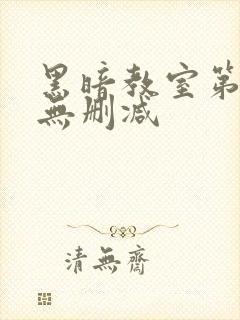 黑暗教室第
無删减
清無齋